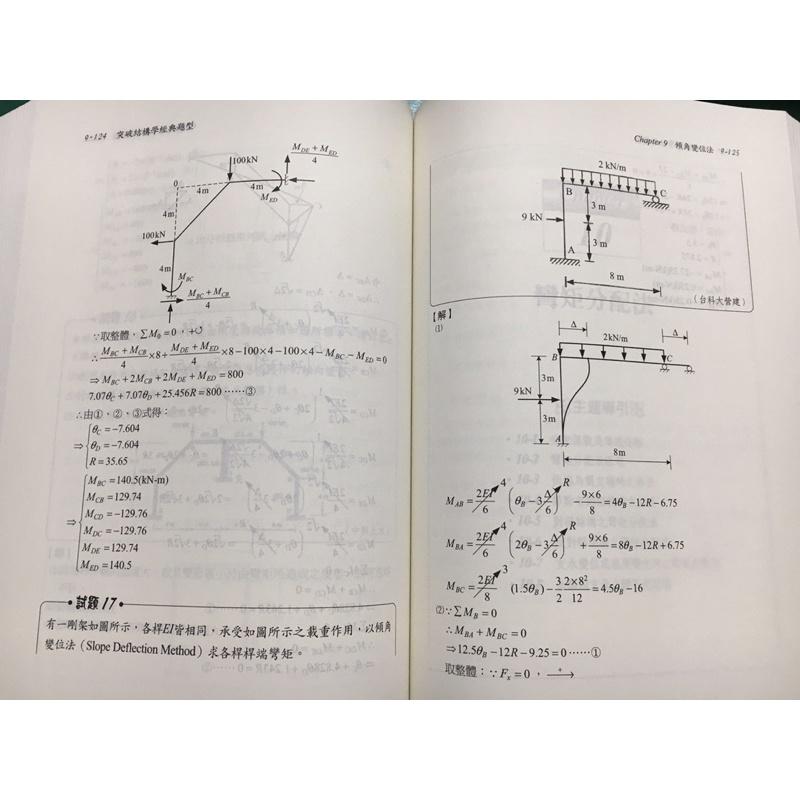 9-124 突破結構學經典題型
100kN
M_DE + M_ED
4
0
4m
4m
M_ED
4m
100kN
4m
M_BC
M_BC + M_CB
4
∵取整體，∑M₀ = 0，+↺
∴ (M_BC + M_CB)/4 ×8 + (M_DE + M_ED)/4 ×8 −100×4 −100×4 − M_BC − M_ED = 0
⇒ M_BC + 2M_CB + 2M_DE + M_ED = 800
7.07θ_C + 7.07θ_D + 25.456R = 800 ……③
∴由①、②、③式得：
⇒ θ_C = −7.604
θ_D = −7.604
R = 35.65
⇒ M_BC = 140.5(kN-m)
M_CB = 129.74
M_CD = −129.76
M_DC = −129.76
M_DE = 129.74
M_ED = 140.5
試題 17
有一剛架如圖所示，各桿EI皆相同，承受如圖所示之載重作用，以傾角
變位法（Slope Deflection Method）求各桿桿端彎矩。
Chapter 9 傾角變位法 9-125
2 kN/m
B
C
3 m
9 kN
3 m
A
8 m
（台科大營建）
【解】
(1)
Δ
Δ
2kN/m
B
C
3m
9kN
3m
A
8m
M_AB = 2EI/6 4 (θ_B − 3 Δ/6 R) − 9×6/8 = 4θ_B − 12R − 6.75
M_BA = 2EI/6 4 (2θ_B − 3 Δ/6 R) + 9×6/8 = 8θ_B − 12R + 6.75
M_BC = 2EI/8 3 (1.5θ_B) − 3/2 2×8²/12 = 4.5θ_B − 16
(2)∵∑M_B = 0
∴M_BA + M_BC = 0
⇒ 12.5θ_B − 12R − 9.25 = 0 ……①
取整體：∵F_x = 0，+→